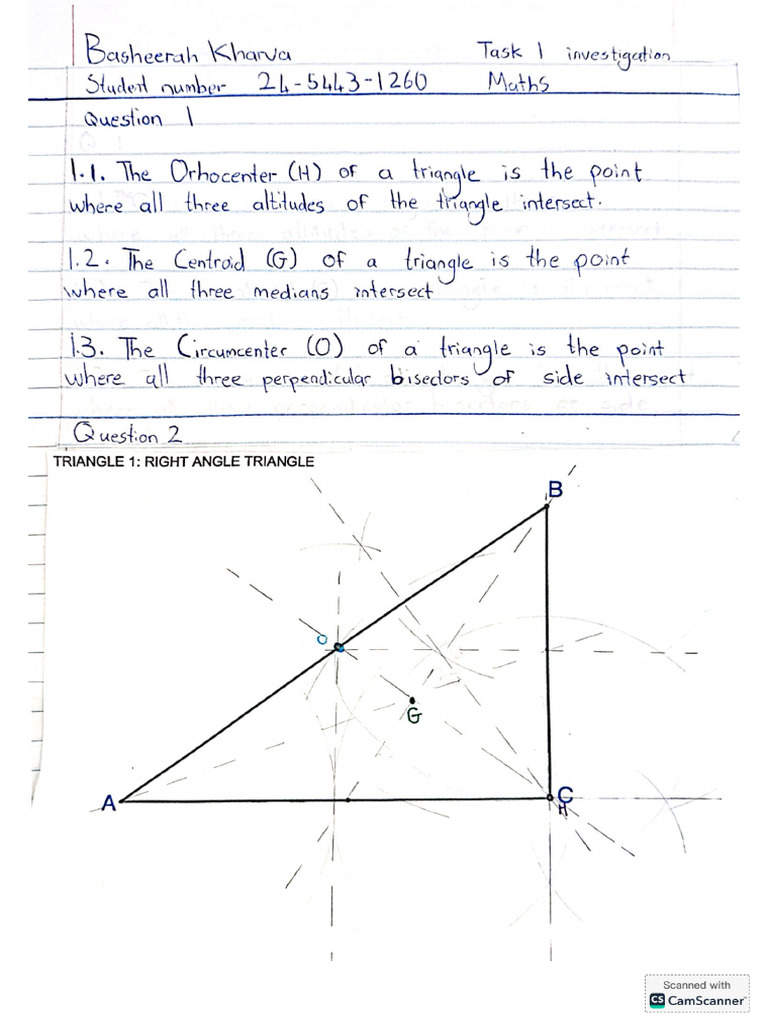 Basheerah Kharva Task 1 investigation
Student number 24-5443-1260 Maths
Question 1
1.1. The Orhocenter (H) of a triangle is the point
where all three altitudes of the triangle intersect.
1.2. The Centroid (G) of a triangle is the point
where all three medians intersect
1.3. The Circumcenter (O) of a triangle is the point
where all three perpendicular bisectors of side intersect
Question 2
TRIANGLE 1: RIGHT ANGLE TRIANGLE
B
O
G
A
C
H
Scanned with
CS CamScanner